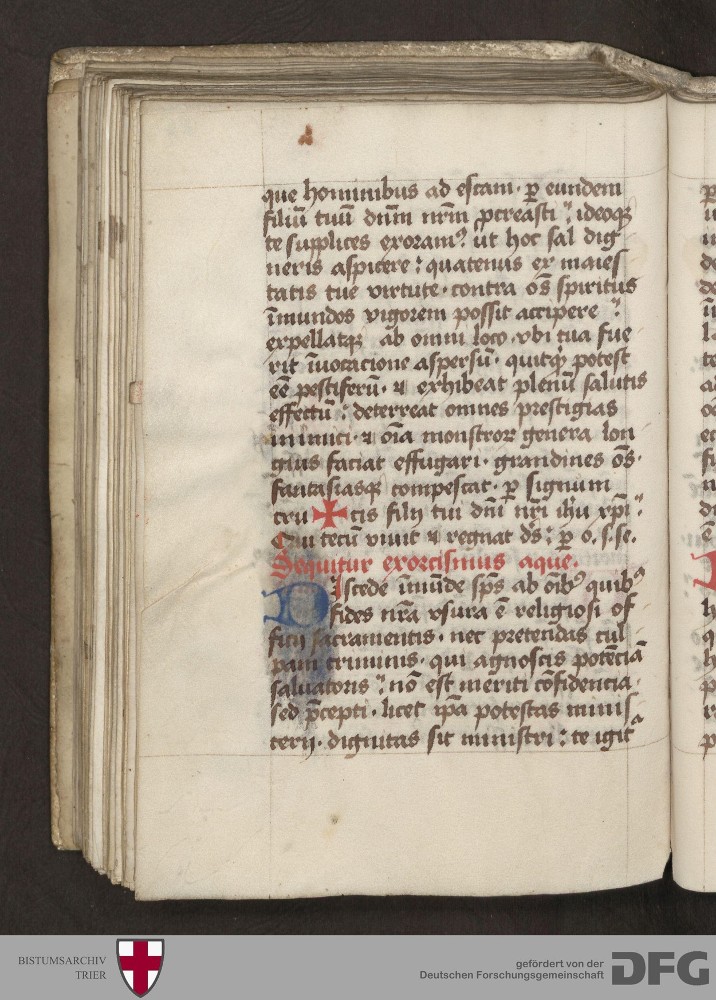 que hominibus ad escam · ꝑ eundem
filiū tuū dn̄m nr̄m ꝓcreasti : ideoqꝫ
te supplices exoramꝰ ut hoc sal dig
neris aspicere : quatenus ex maies
tatis tue virtute · contra oēs spiritus
īmundos vigorem possit accipere :
expellatqꝫ ab omni loco · vbi tua fue
rit īuocacione aspersū · quitqͥd potest
eē pestiferū · ⁊ exhibeat plenū salutis
effectū : deterreat omnes prestigias
inimici · ⁊ oīa monstroꝝ genera lon
gius faciat effugari · grandines oēs ·
fantasiasqꝫ compescat · ꝑ signum
cru ✠ cis filij tui dn̄i nr̄i ih̄u xp̄i :
Qui tecū viuit ⁊ regnat ds̄ : ꝑ o. s. se.
Sequitur exorcismus aque.
DIscede īmūde sp̄s ab oībꝰ quibꝰ
fides nr̄a vsura ē religiosi of
ficij sacramentis · nec pretendas cul
pam criminis · qui agnoscis potēciā
saluatoris : nō est meriti cōfidencia ·
sed p̄cepti · licet ip̄a potestas minis
terij · dignitas sit ministri : te igit᷑
BISTUMSARCHIV
TRIER
gefördert von der
Deutschen Forschungsgemeinschaft
DFG